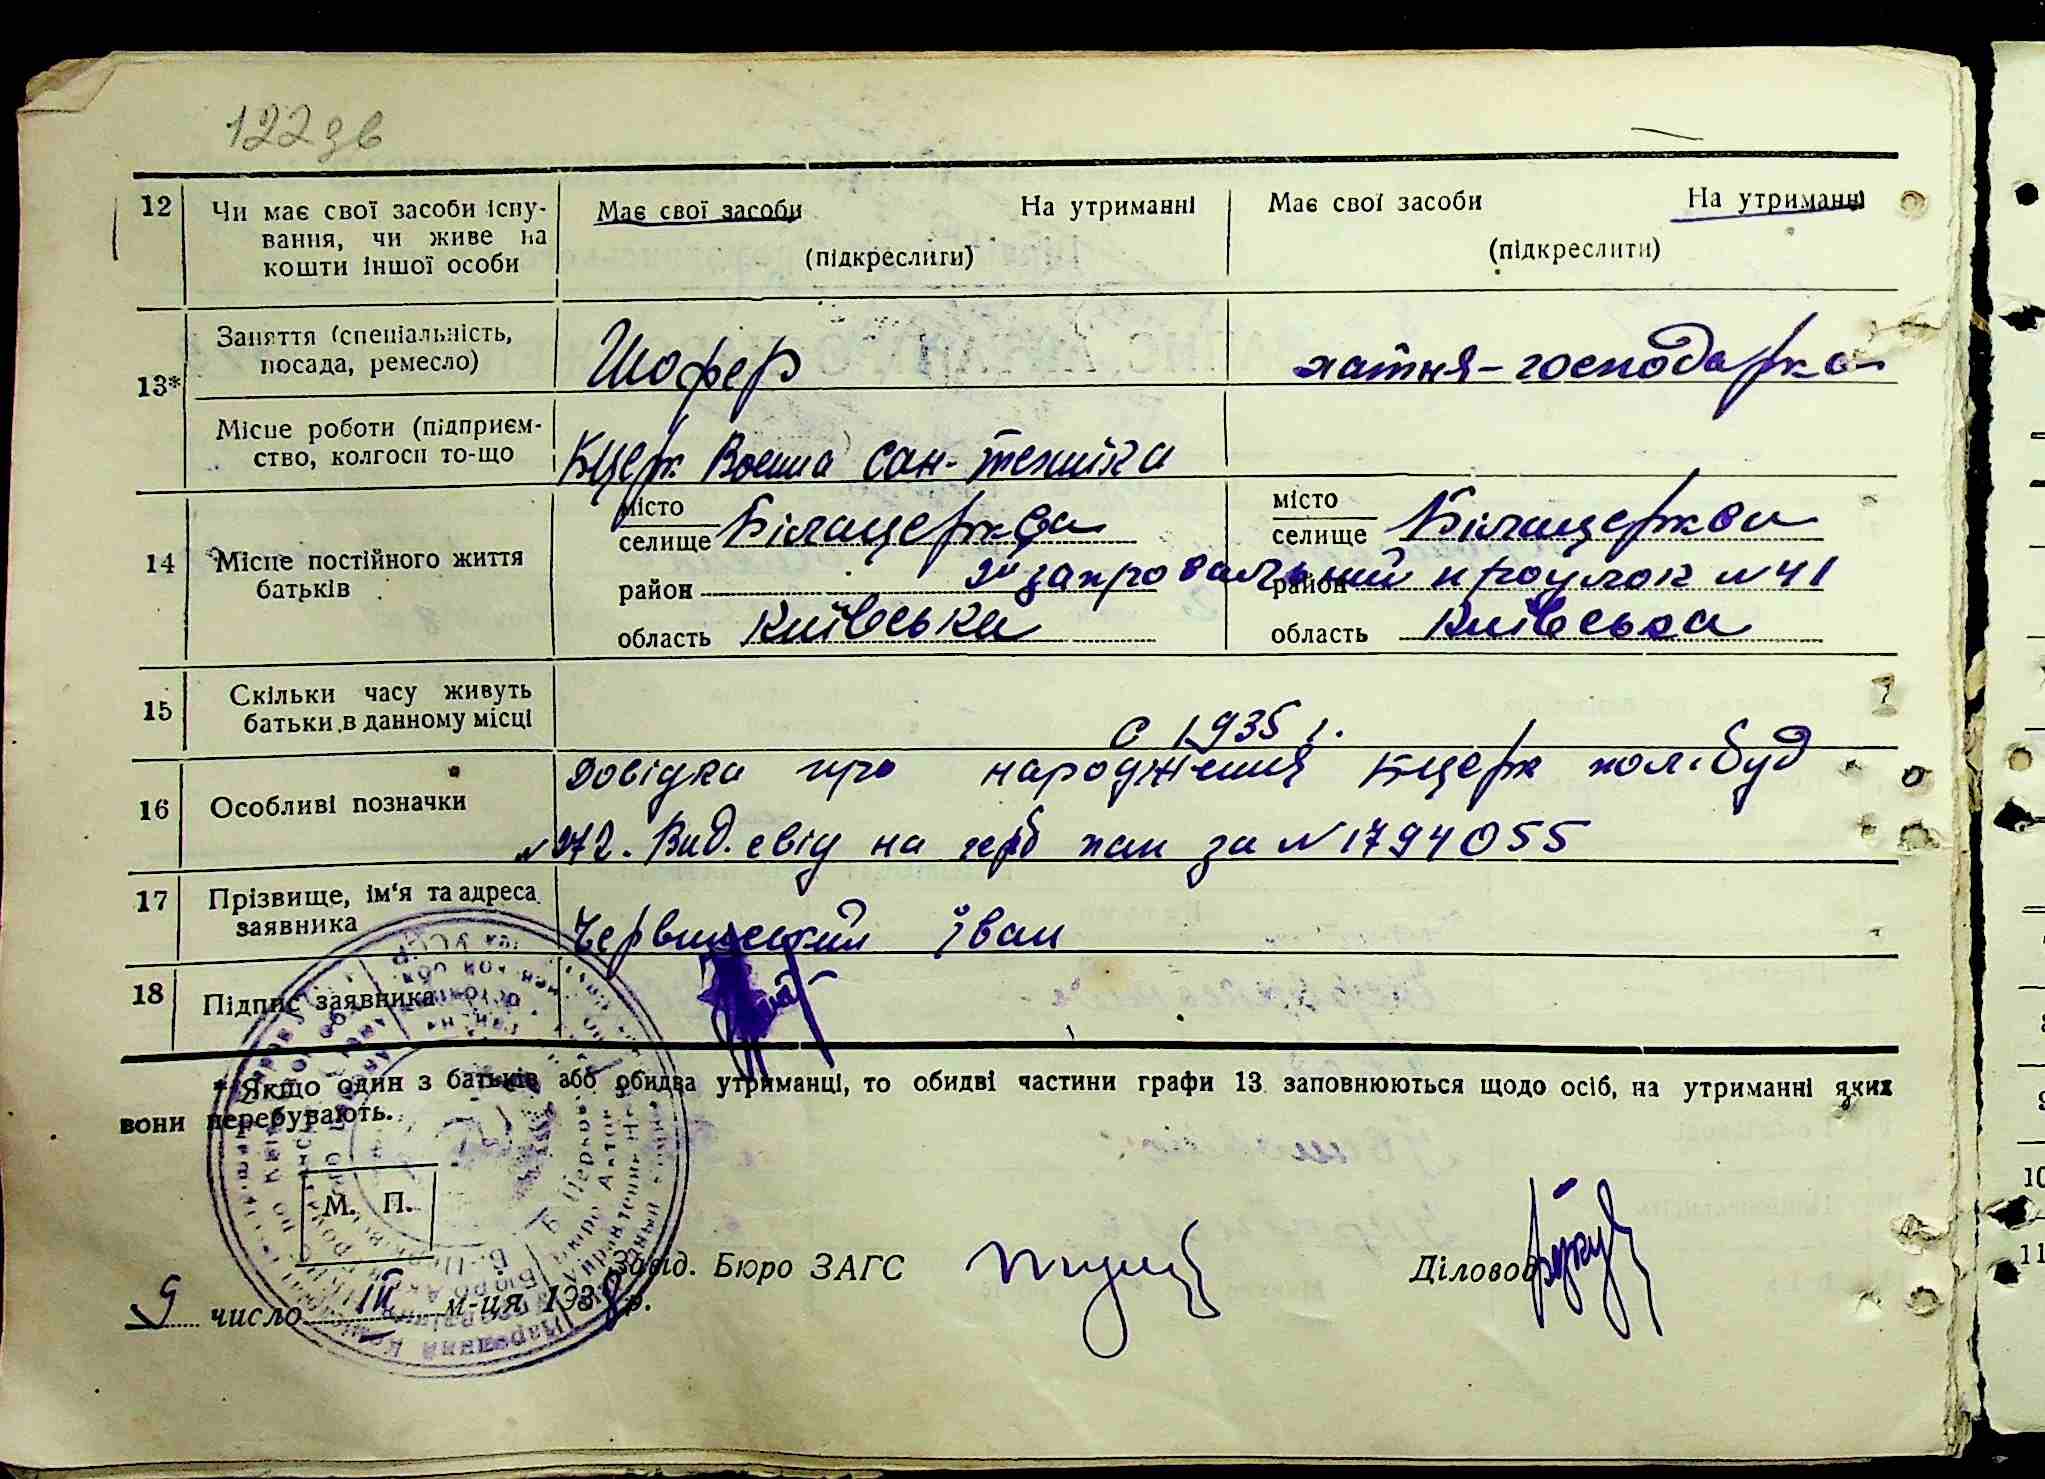 122 зв
12 Чи має свої засоби існу-
вання, чи живе на
кошти іншої особи
Має свої засоби На утриманні
(підкреслити)
Має свої засоби На утриманні
(підкреслити)
13* Заняття (спеціальність,
посада, ремесло)
Шофер
хатня-господарка
Місце роботи (підприєм-
ство, колгосп то-що
Бцерк Воєнна сан-техніка
14 Місце постійного життя
батьків
місто
селище Білацерква
район
область Київська
місто
селище Білацерква
район
провулок N 41
область Київська
15 Скільки часу живуть
батьки в данному місці
С 1935 г.
16 Особливі позначки
Довідка про народження Бцерк пол. буд
N 272. Вид. свід на герб пап за N 1794055
17 Прізвище, ім'я та адреса
заявника
Червинский Іван
18 Підпис заявника
* Якщо один з батьків або обидва утриманці, то обидві частини графи 13 заповнюються щодо осіб, на утриманні яких
вони перебувають.
М. П.
Завід. Бюро ЗАГС
Діловод
9 число III м-ця 1938 р.